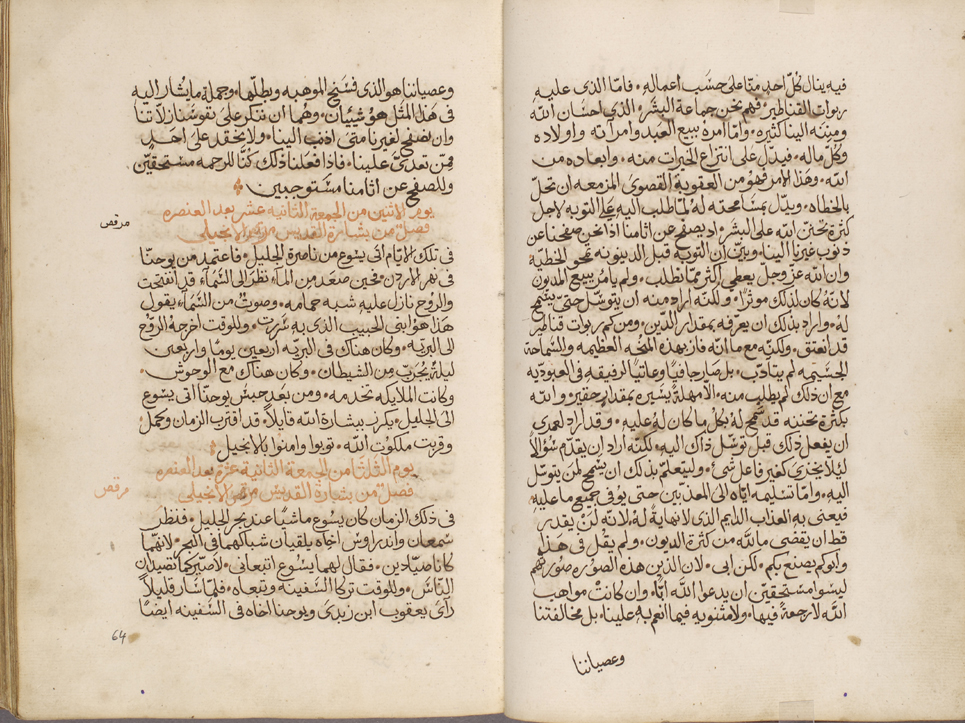 فيه ينال كُلّ احدٍ منّا على حسَب اعماله ٭ فامّا الذى عليه
ربوات القناطير فهم نحن جماعة البشَر الذى احسَان الله
ومنته الينا كثيره ٭ وامّا امره ببيع العبد وامراته واولاده
وكلّ ماله ٭ فيدلّ على انتزاع الخيرات منه ٭ وابعاده من
الله ٭ وهَذا الامر فهو من العقوبة القصوى المزمعه ان تحلّ
بالخطاه ٭ ويدّل بمسَامحته له لمّا طلب اليه على التوبه لاجل
كثرة تحنّن الله على البشَر ٭ اذ يصفح عن اثامنا اذا نحن صفحنا عن
ذنوب غيرنا الينا ٭ ويبيّن ان التوبه قبل الدينونه تمحو الخطيّه
وان الله عزّ وجلّ يعطى اكثر ممّا نطلب ٭ ولم يامر ببيع المديون
لانه كان لذلك موثرًا ٭ ولكنّه اراد منه ان يتوسَّل حتى يسمح
له ٭ واراد بذلك ان يعرّفه بمقدار الدّين ٭ ومن كم ربوات قناطير
قد انعتق ٭ ولكنّه مع ما انه فاز بهذه المنحه العظيمه والسَّماحة
الجسَيمه لم يتادّب ٭ بل صَار جافيًا وعاتيًا الرفيقه فى العبوديّه
مع ان ذلك لم يطلب منه ٭ الّا مهلة يسَيره بمقدار حقير ٭ والله
بكثرة تحننه قد سَمح له بكل ما كان له عليه ٭ وقد اراد لعمرى
ان يفعل ذلك قبل توسّل ذاك اليه ٭ لكنّه اراد ان يقدّم سُوالًا
ليلا يجزى كغير فاعل شئ ٭ وليتعلم بذلك ان يسَمح لمن يتوسّل
اليه ٭ وامّا تسَليمه ايّاه الى المعذّبين حتى يوفى جميع ما عليه
فيعنى به العذاب الدايم الذى لا نهاية له ٭ لانه لن يقدر
قط ان يقضى ما لله من كثرة الديون ٭ ولم يقل فى هَذا
وابوكم يصنع بكم ٭ لكن ابى ٭ لان الذين هذه الصوره صورتهم
ليسَوا مسَتحقين ان يدعوا الله ابًا ٭ وان كانت مواهب
الله لا رجعة فيها ٭ ولا مثنويه فيما انعم به علينا ٭ بل مخالفتنا
وعصياننا
وعصياننا هو الذى فسَخ الموهبه وبطلّها ٭ وجملة ما يشار اليه
فى هَذا المثل هو شيئان ٭ وهُما ان نتكر على نفوسَنا زلّاتنا
وان نصفح لغيرنا متى اذنب الينا ٭ ولا نحقد على احدٍ
ممّن تعدّى علينا ٭ فاذا فعلنا ذلك كُنّا للرحمه مسَتحقيّن
وللصفح عن اثامنا مستوجبين
يوم الاثنين من الجمعة الثانيه عشر بعد العنصره
فصل من بشارة القديس مرقس الانجيلى
مرقص
فى تلك الايام اتى يسُوع من ناصرة الجليل ٭ فاعتمد من يوحنّا
فى نهر الاردن ٭ فحين صعَد من المآء نظر الى السَّمآء قد انفتحت
والروح نازل عليه شبه حمامه ٭ وصوتٌ من السَّمآء يقول
هَذا هو ابنى الحبيب الذى به سُررت ٭ وللوقت اخرجه الروح
الى البريّه ٭ وكان هناك فى البريّه اربعين يومًا واربعين
ليلةً يُجرّب مِن الشيطان ٭ وكان هناك مع الوحوش
وكانت الملايكه تخدمه ٭ ومن بعد حبس يوحنّا اتى يسوع
الى الجليل ٭ يكرز ببشارة الله قايلًا ٭ قد اقترب الزمان وكمل
وقربت ملكوت الله ٭ توبوا وامنوا بالانجيل
يوم الثلثا من الجمعة الثانية عشرة بعد العنصره
فصل من بشارة القديس مرقس الانجيلى
مرقص
فى ذلك الزمان كان يسُوع ماشيًا عند بحر الجليل ٭ فنظر
سَمعان واندراوس اخاه يلقيان شباكهما فى البحر ٭ لانهّما
كانا صيّادين ٭ فقال لهما يسُوع اتبعانى ٭ لاصيّركما تصيدان
النّاسَ ٭ وللوقت تركا السَّفينه وتبعاه ٭ فلمّا سَار قليلًا
رآى يعقوب ابن زبدى ويوحنا اخاه فى السَّفينه ايضًا
64